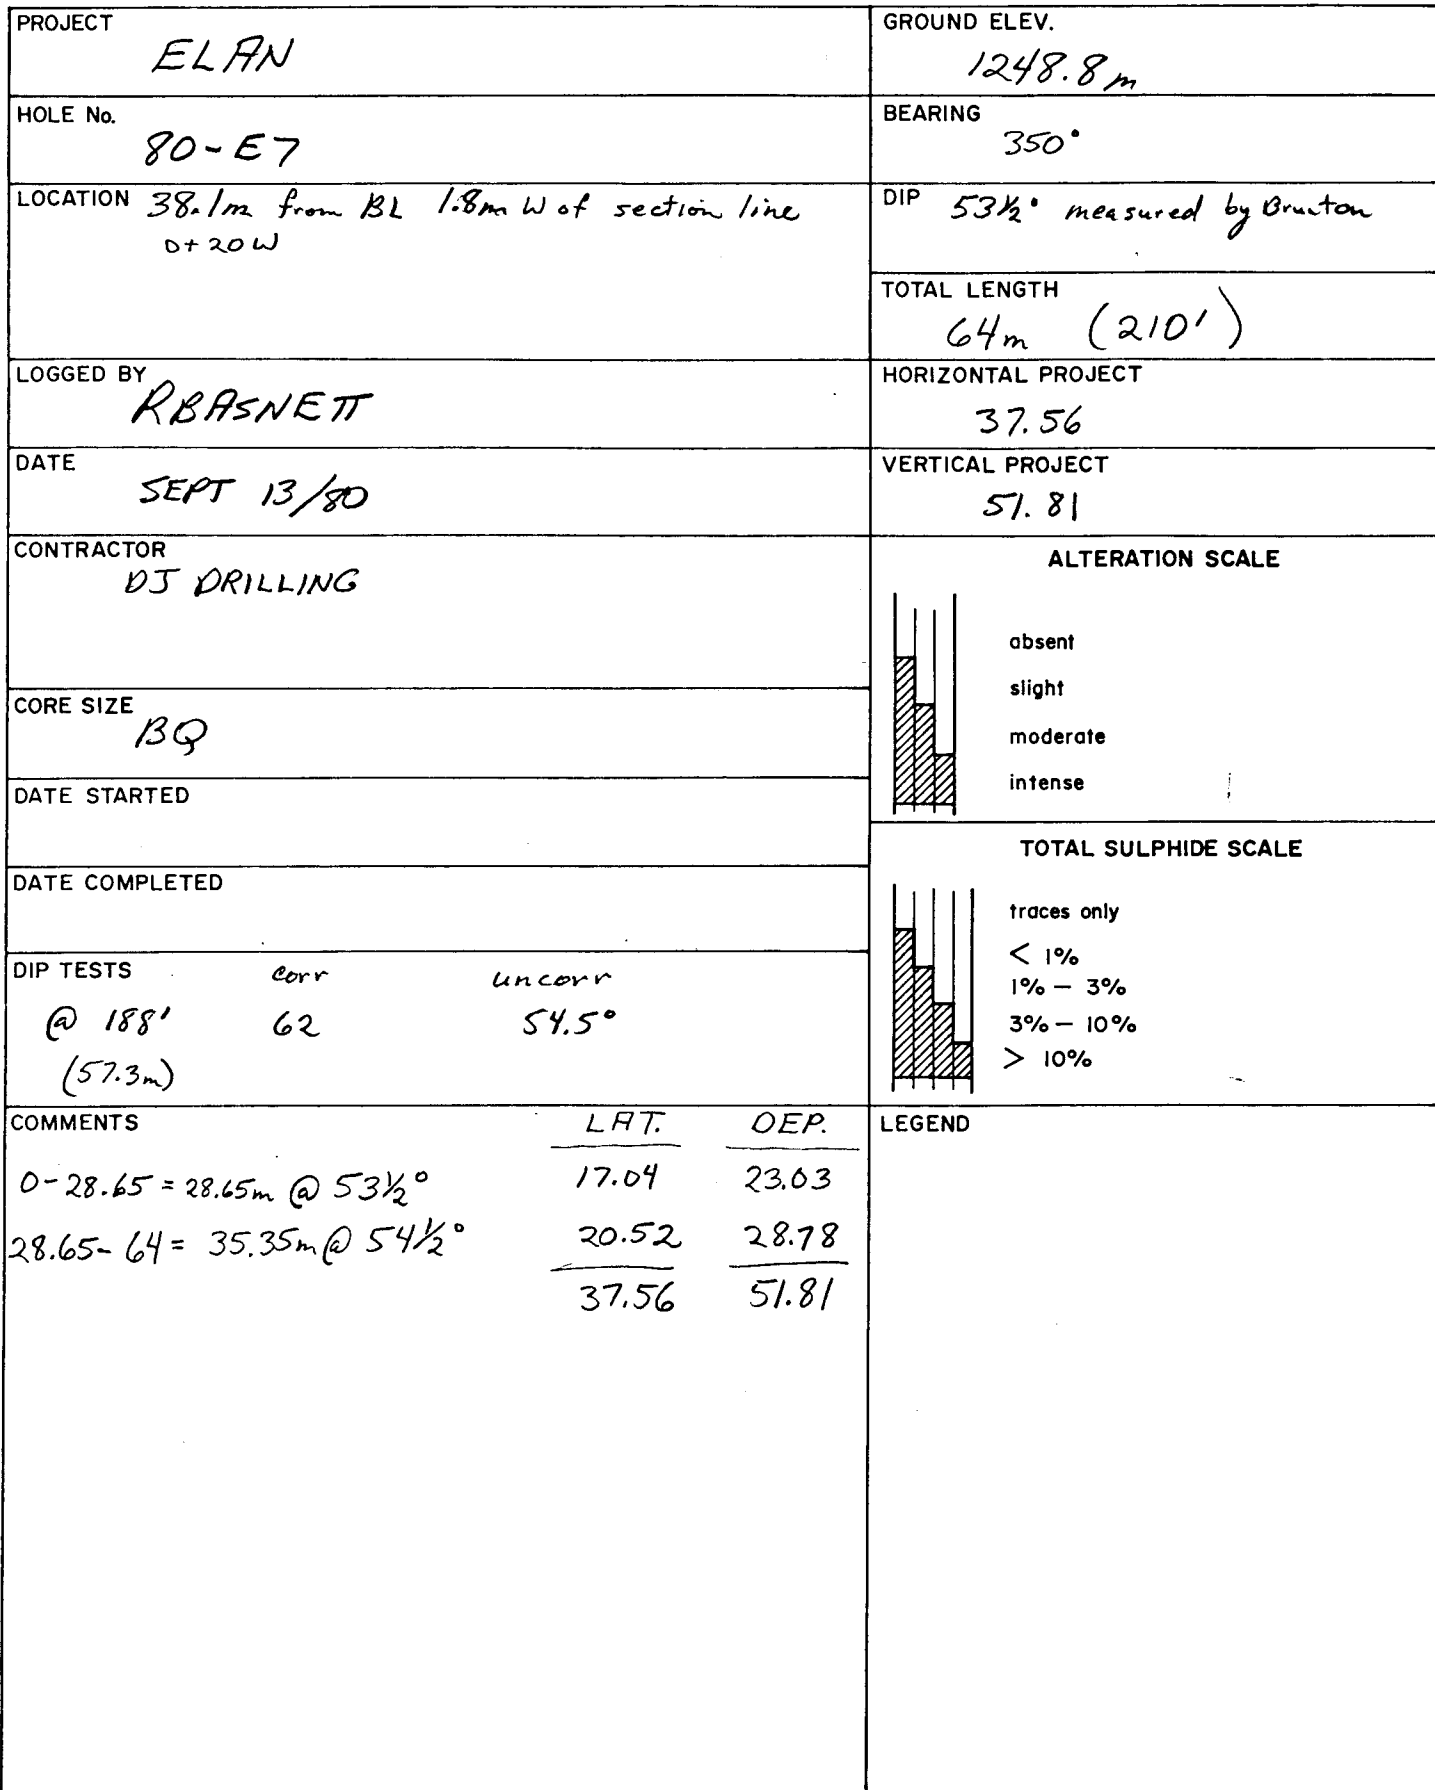 PROJECT
ELAN
HOLE No.
80-E7
LOCATION 38.1m from BL 1.8m W of section line
0+20W
LOGGED BY
RBASNETT
DATE
SEPT 13/80
CONTRACTOR
DJ DRILLING
CORE SIZE
BQ
DATE STARTED
DATE COMPLETED
DIP TESTS corr uncorr
@ 188' 62 54.5°
(57.3m)
COMMENTS LAT. DEP.
0-28.65 = 28.65m @ 53½° 17.04 23.03
28.65-64 = 35.35m @ 54½° 20.52 28.78
37.56 51.81
GROUND ELEV.
1248.8m
BEARING
350°
DIP 53½° measured by Brunton
TOTAL LENGTH
64m (210')
HORIZONTAL PROJECT
37.56
VERTICAL PROJECT
51.81
ALTERATION SCALE
absent
slight
moderate
intense
TOTAL SULPHIDE SCALE
traces only
< 1%
1% – 3%
3% – 10%
> 10%
LEGEND